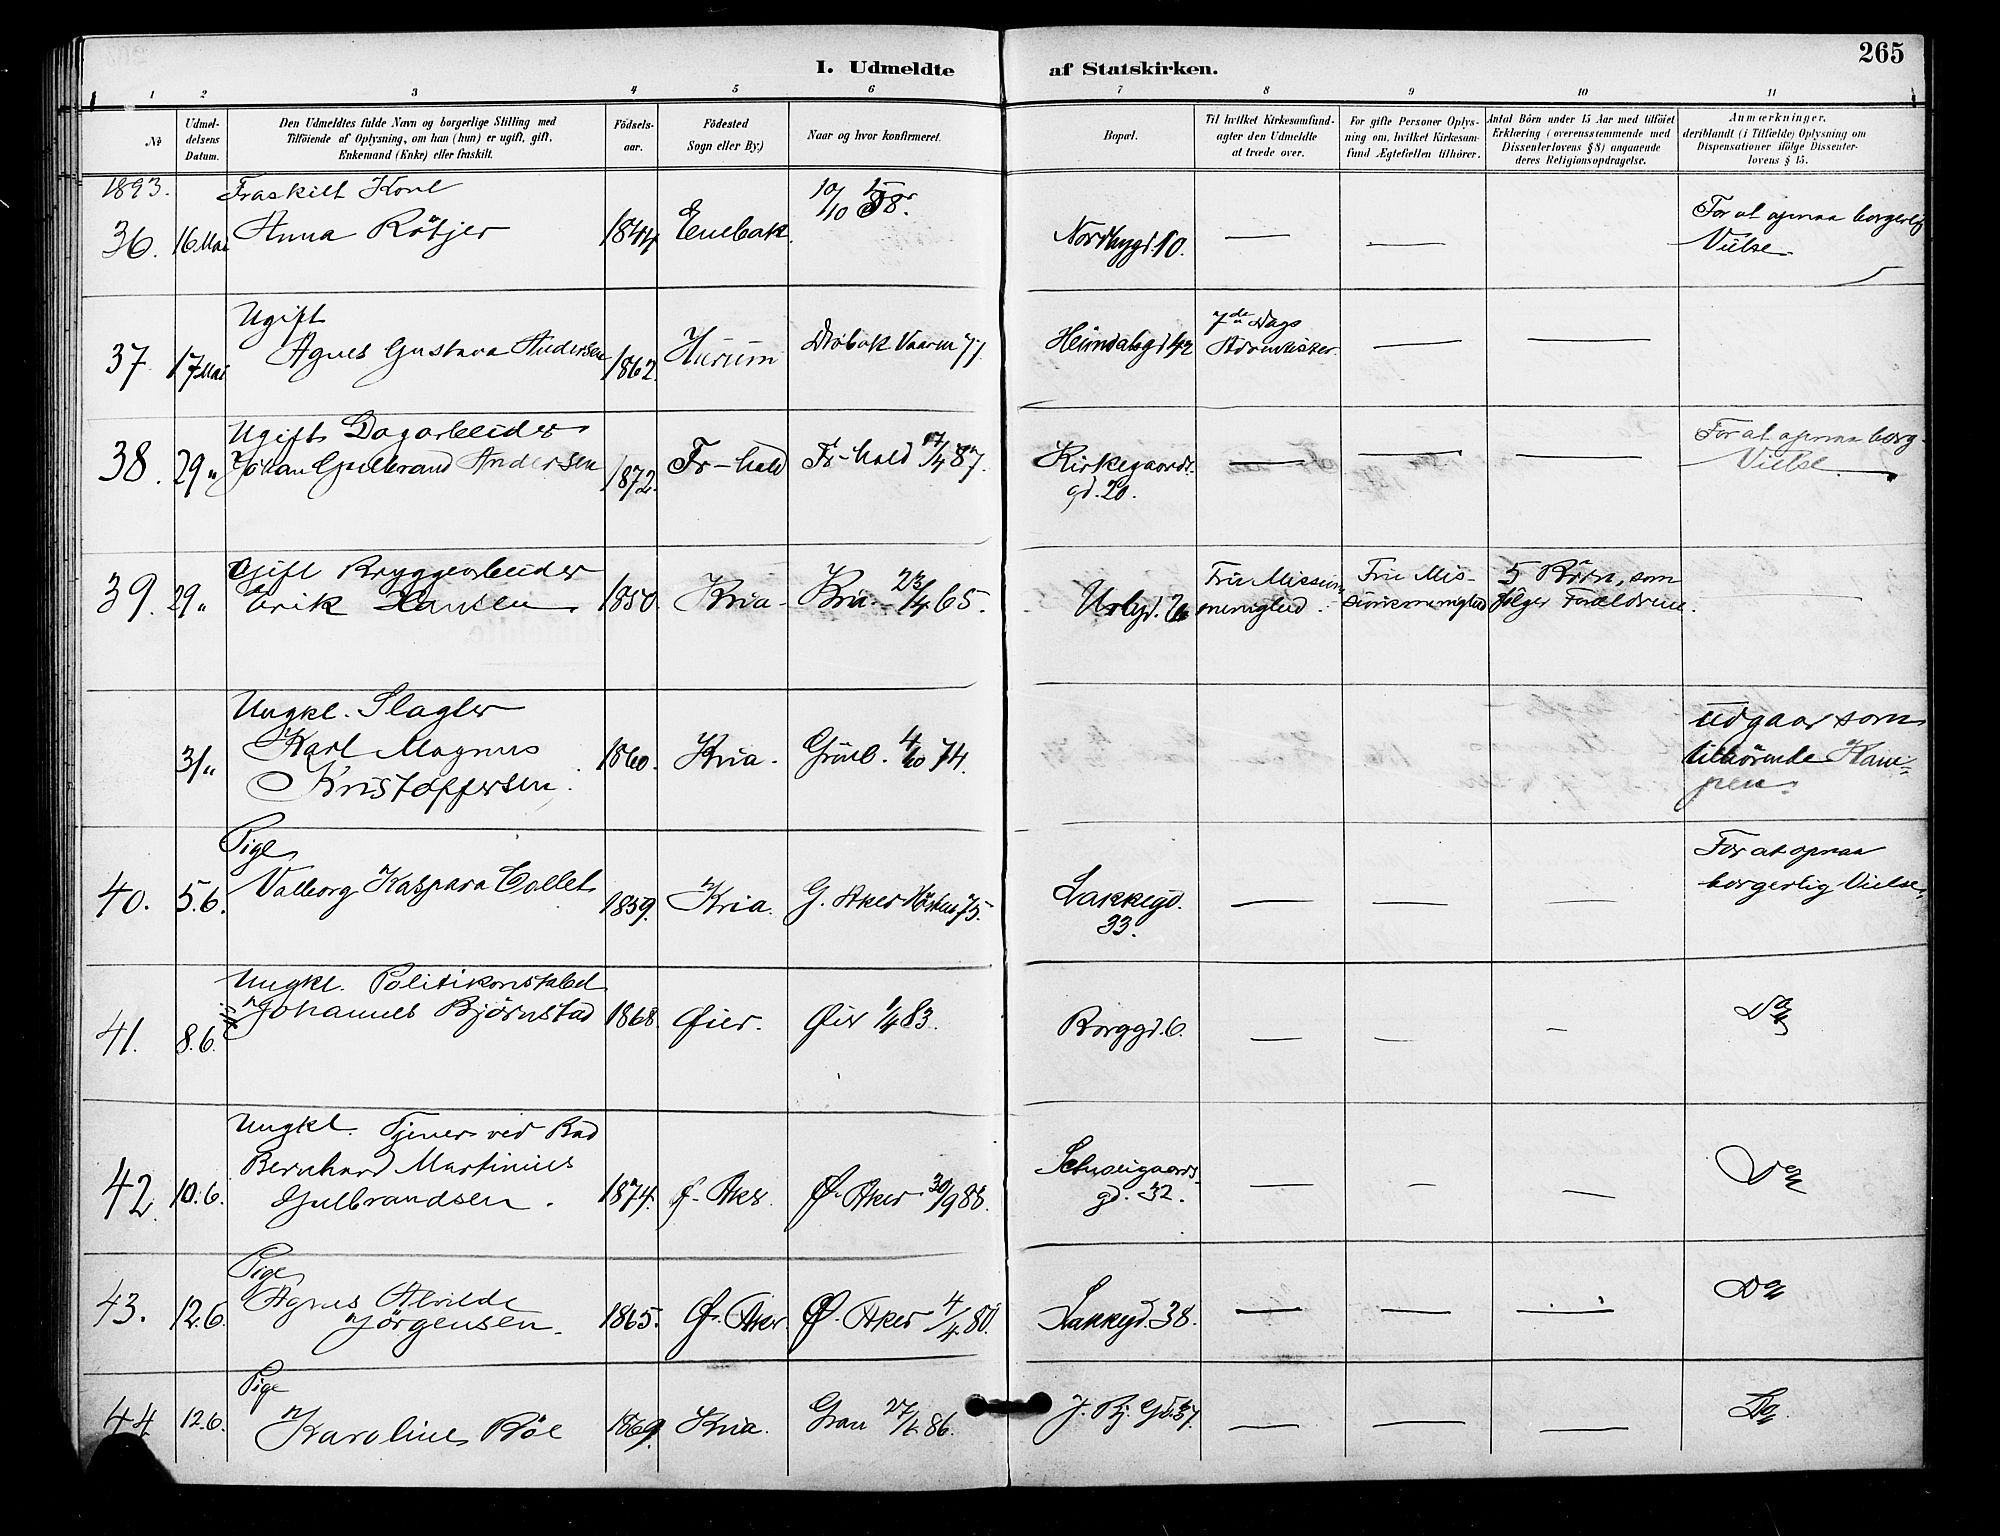 265
I. Udmeldte af Statskirken.
1 2 3 4 5 6 7 8 9 10 11
No
Udmel-
delsens
Datum.
Den Udmeldtes fulde Navn og borgerlige Stilling med
Tilföiende af Oplysning, om han (hun) er ugift, gift,
Enkemand (Enke) eller fraskilt.
Födsels-
aar.
Födested
Sogn eller By.)
Naar og hvor konfirmeret.
Bopæl.
Til hvilket Kirkesamfund-
agter den Udmeldte
at træde over.
For gifte Personer Oplys-
ning om, hvilket Kirkesam-
fund Ægtefællen tilhörer.
Antal Börn under 15 Aar med tilföiet
Erklæring (overensstemmende med
Dissenterlovens § 8) angaaende
deres Religionsopdragelse.
Anmærkninger,
deriblandt (i Tilfælde) Oplysning om
Dispensationer ifölge Dissenter-
lovens § 15.
1893.
Fraskilt Kone
36. 16 Mai Anna Rötjer 1844 Enebak. 10/10 58. Nordbygd. 10. — — — For at opnaa borgerlig
Vielse
Ugift
37 17 Mai Agnes Gustava Andersen 1862. Hurum Dröbak Vaaren 77 Heimdalsgd 42 7de Dags
Adventister — —
Ugift Dagarbeider
38. 29 „ Johan Gulbrand Andersen 1872. Fr-hald Fr-hald 17/4 87. Kirkegaards-
gd. 20. — — — For at opnaa borg-
Vielse.
Gift Bryggearbeider
39. 29 „ Erik Hansen. 1850. Kria- Kria- 23/4 65. Urbygd. Frie Missions
menighed. Frie Mis-
sionsmenighed 5 Börn, som
fölger Forældrene. —
Ungkl. Slagter
31 „ Karl Magnus
Kristoffersen. 1860. Kria- Grönl. 4/10 74. Udgaar som
tilhörende Kam-
pen.
Pige
40. 5.6. Valborg Kaspara Collet 1859. Kria. G. Aker Hösten 75. Lakkegd.
33. — — — For at opnaa
borgerlig Vielse.
Ungkl. Politikonstabel
41. 8.6. Johannes Björnstad 1868. Öier. Öier 1/4 83. Borggd. 6. — — — Do
Ungkl. Tjener ved Bad
42. 10.6. Bernhard Martinius
Gulbrandsen. 1874. Ö. Aker. Ö. Aker 30/9 88. Schweigaards-
gd. 32. — — — Do
Pige
43. 12.6. Agnes Alvilde
Jörgensen. 1865. Ö. Aker. Ö. Aker 4/4 80. Lakkegd. 38. — — — Do
Pige
44 12.6. Karoline Röe 1869. Kria. Gran 86. J. Bj. Gd. 37. — — — Do.